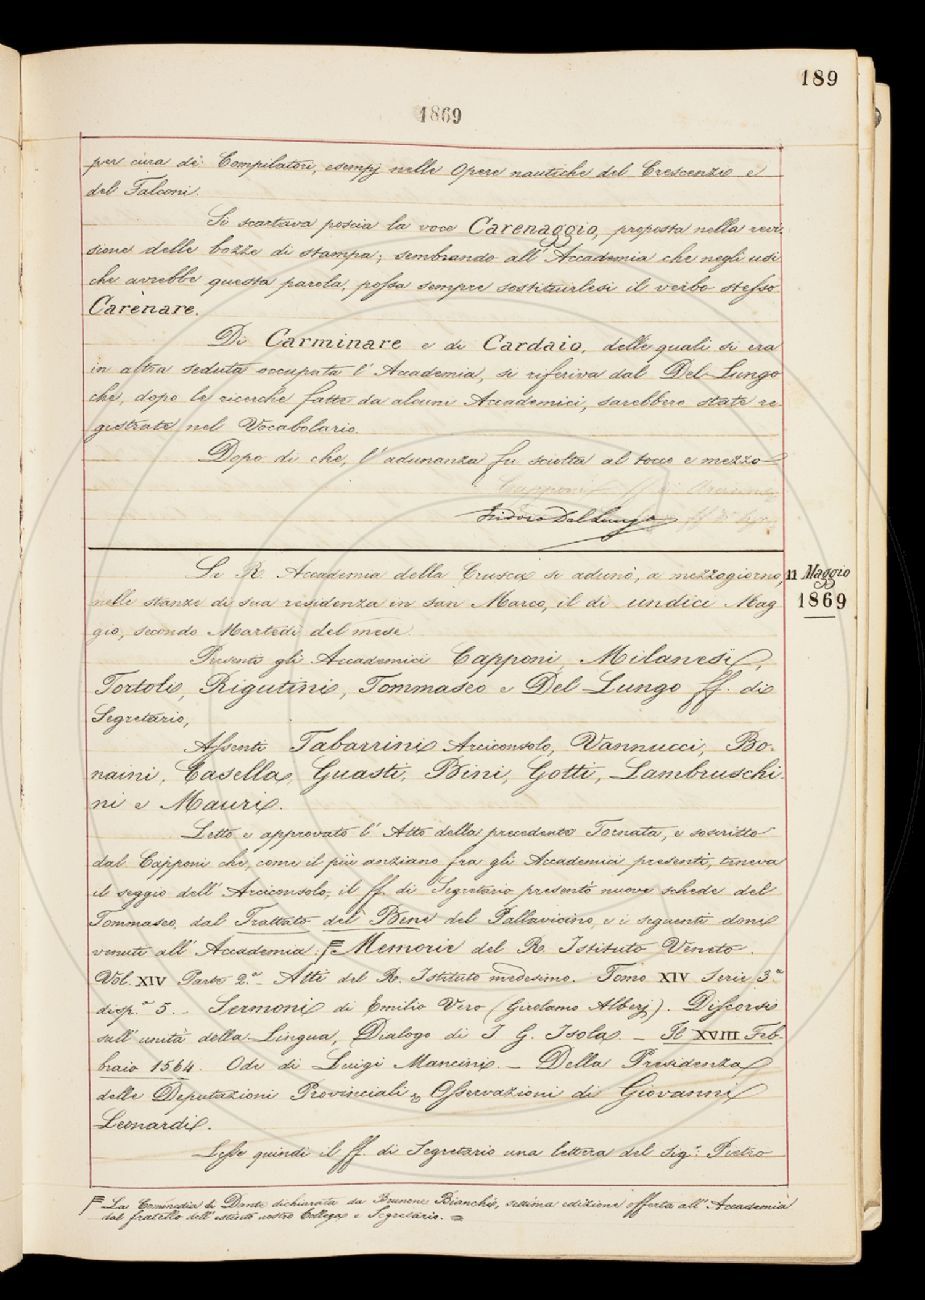 189
1869
per cura de' Compilatori, esempj nelle Opere nautiche del Crescenzio e
del Falconi.
Si scartava poscia la voce Carenaggio, proposta nella revi-
sione delle bozze di stampa; sembrando all'Accademia che negli usi
che avrebbe questa parola, possa sempre sostituirlesi il verbo stesso
Carenare.
Di Carminare e di Cardaio, delle quali si era
in altra seduta occupata l'Accademia, si riferiva dal Del Lungo
che, dopo le ricerche fatte da alcuni Accademici, sarebbero state re-
gistrate nel Vocabolario.
Dopo di che, l'adunanza fu sciolta al tocco e mezzo
Capponi ff di Arcicons
Isidoro Del Lungo ff di Segr.
La R. Accademia della Crusca si adunò, a mezzogiorno,
11 Maggio
1869
nelle stanze di sua residenza in san Marco, il dì undici Mag
gio, secondo Martedì del mese.
Presenti gli Accademici Capponi, Milanesi,
Tortoli, Rigutini, Tommaseo e Del Lungo ff. di
Segretario,
Assenti Tabarrini Arciconsolo, Vannucci, Bo-
naini, Casella, Guasti, Bini, Gotti, Lambruschi
ni e Mauri.
Letto e approvato l'Atto della precedente Tornata, e soscritto
dal Capponi che, come il più anziano fra gli Accademici presenti, teneva
il seggio dell'Arciconsolo, il ff. di Segretario presentò nuove schede del
Tommaseo, dal Trattato del Bene del Pallavicino, e i seguenti doni
venuti all'Accademia: F Memorie del R. Istituto Veneto.
Vol. XIV Parte 2ª - Atti del R. Istituto medesimo. Tomo XIV Serie 3ª
disp.ª 5. - Sermoni di Emilio Vero (Girolamo Alberj). Discorso
sull'unità della Lingua, Dialogo di I. G. Isola. - Il XVIII Feb-
braio 1564. Ode di Luigi Mancini. - Della Presidenza
delle Deputazioni Provinciali, Osservazioni di Giovanni
Leonardi.
Lesse quindi il ff. di Segretario una lettera del Sig.r Pietro
F La Commedia di Dante dichiarata da Brunone Bianchi, settima edizione offerta all'Accademia
dal fratello dell'estinto nostro Collega e Segretario.